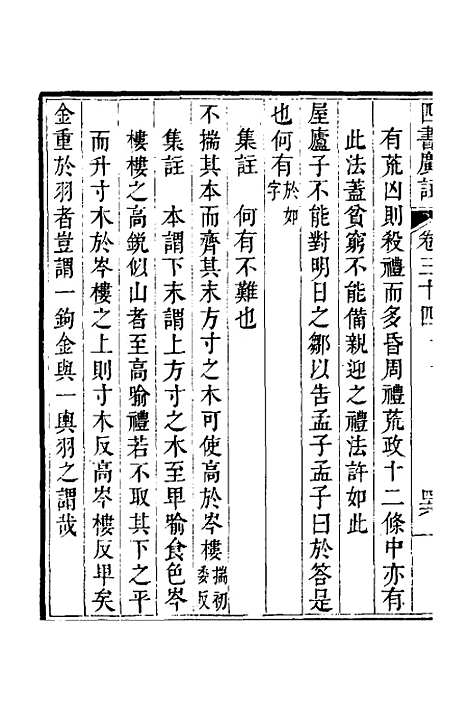 四書廣註 卷三十四
有荒凶則殺禮而多昏周禮荒政十二條中亦有
此法蓋貧窮不能備親迎之禮法許如此
屋廬子不能對明日之鄒以告孟子孟子曰於答是
也何有於如字
集註 何有不難也
不揣其本而齊其末方寸之木可使高於岑樓揣初委反
集註 本謂下末謂上方寸之木至卑喻食色岑
樓樓之高銳似山者至高喻禮若不取其下之平
而升寸木於岑樓之上則寸木反高岑樓反卑矣
金重於羽者豈謂一鉤金與一輿羽之謂哉